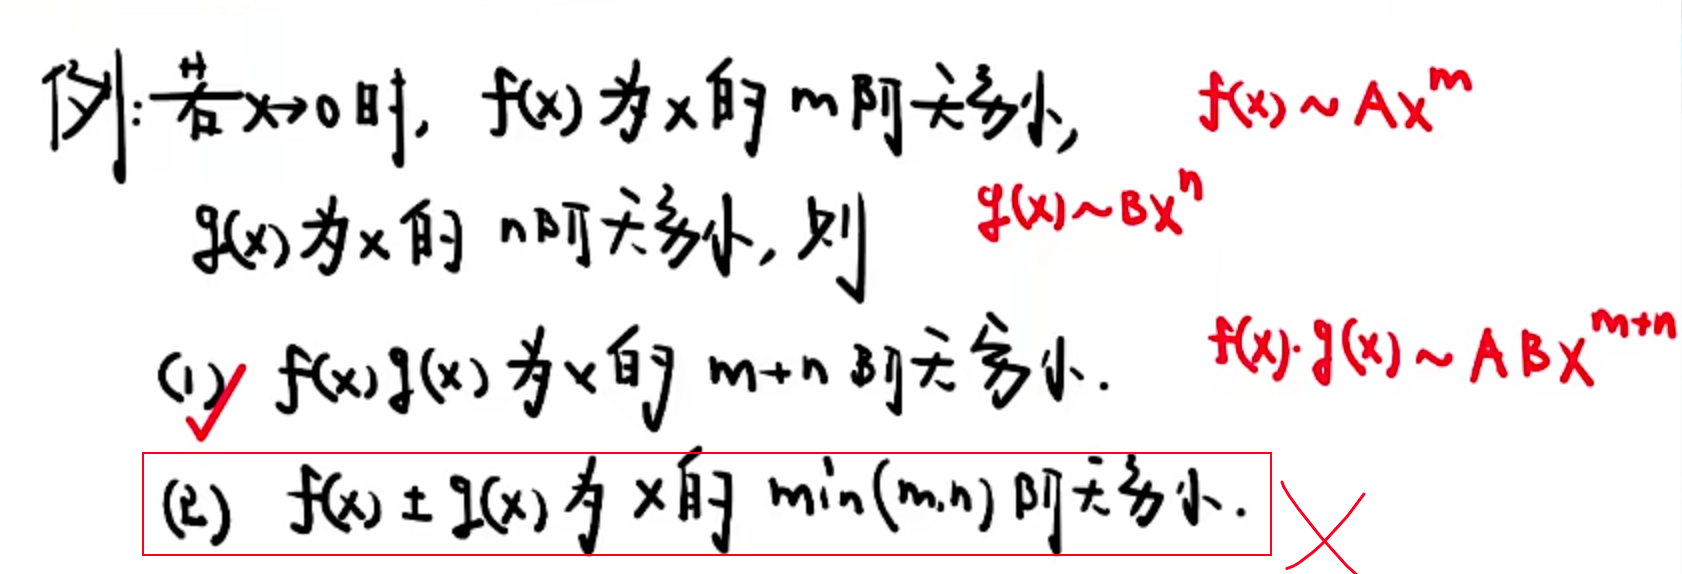 例:若x→0时, f(x)为x的m阶无穷小, f(x)~Ax^m
g(x)为x的n阶无穷小,则 g(x)~Bx^n
(1) f(x)g(x)为x的m+n阶无穷小. f(x)·g(x)~ABx^{m+n}
(2) f(x)±g(x)为x的min(m,n)阶无穷小.